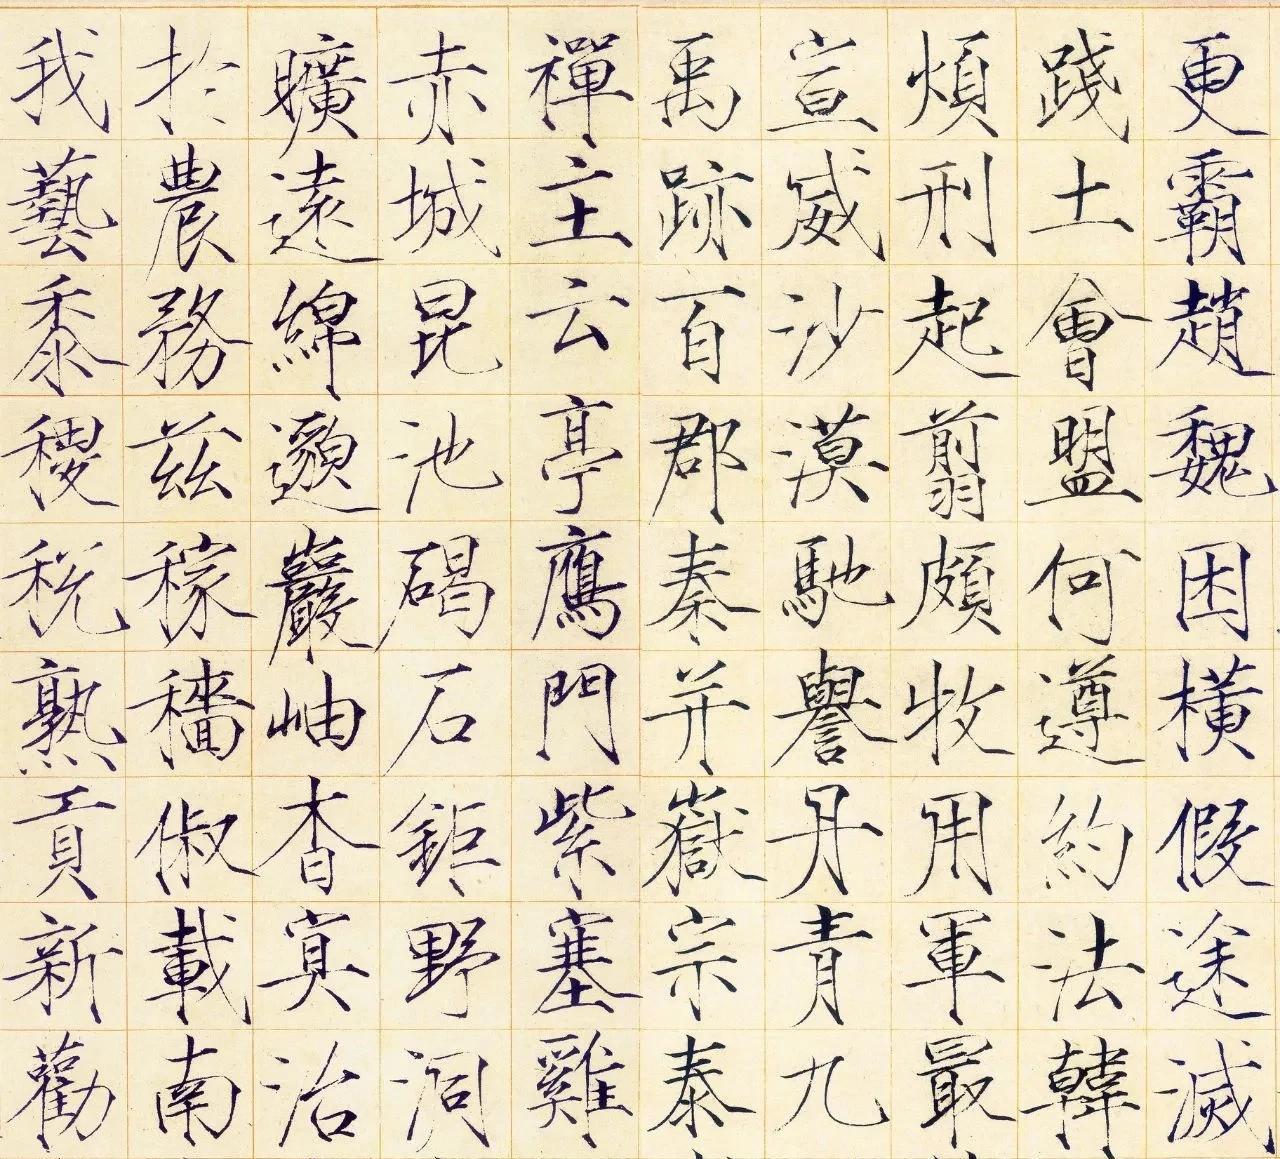 更霸趙魏困橫假途滅
踐土會盟何遵約法韓
煩刑起翦頗牧用軍最
宣威沙漠馳譽丹青九
禹跡百郡秦并嶽宗泰
禪主云亭鴈門紫塞雞
赤城昆池碣石鉅野洞
曠遠綿邈巖岫杳冥治
於農務茲稼穡俶載南
我藝黍稷稅熟貢新勸